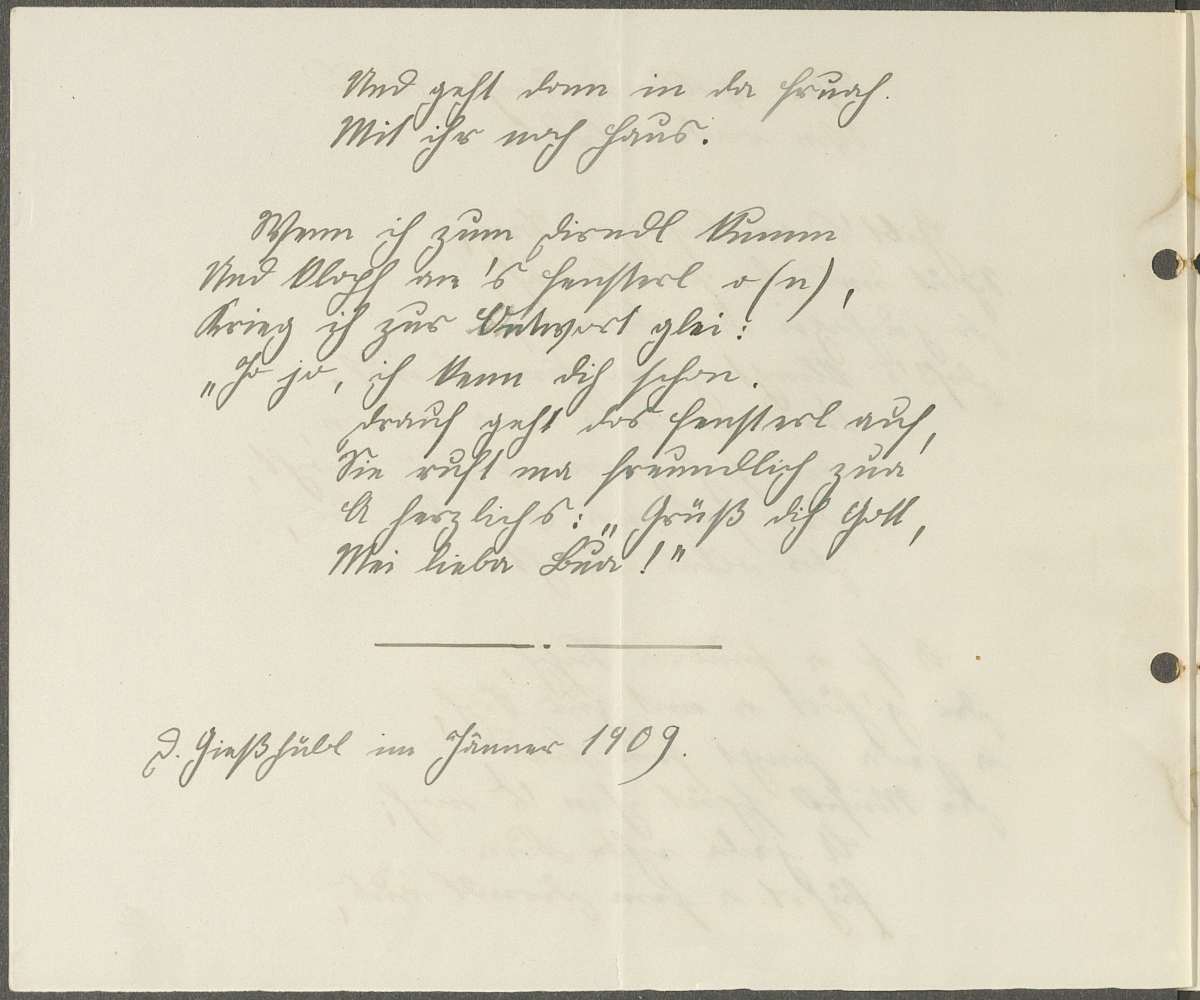 Und geht dann in da Fruah.
Mit ihr nach Haus.
Wenn ich zum Dirndl kumm
Und klopf an's Fensterl o(n),
Krieg ich zur Antwort glei:
„Jo jo, ich kenn dich schon.
Drauf geht das Fensterl auf,
Sie ruft ma freundlich zua
A herzlichs: „Grüß dich Gott,
Mei lieba Bua!"
D. Gießhübl im Jänner 1909.